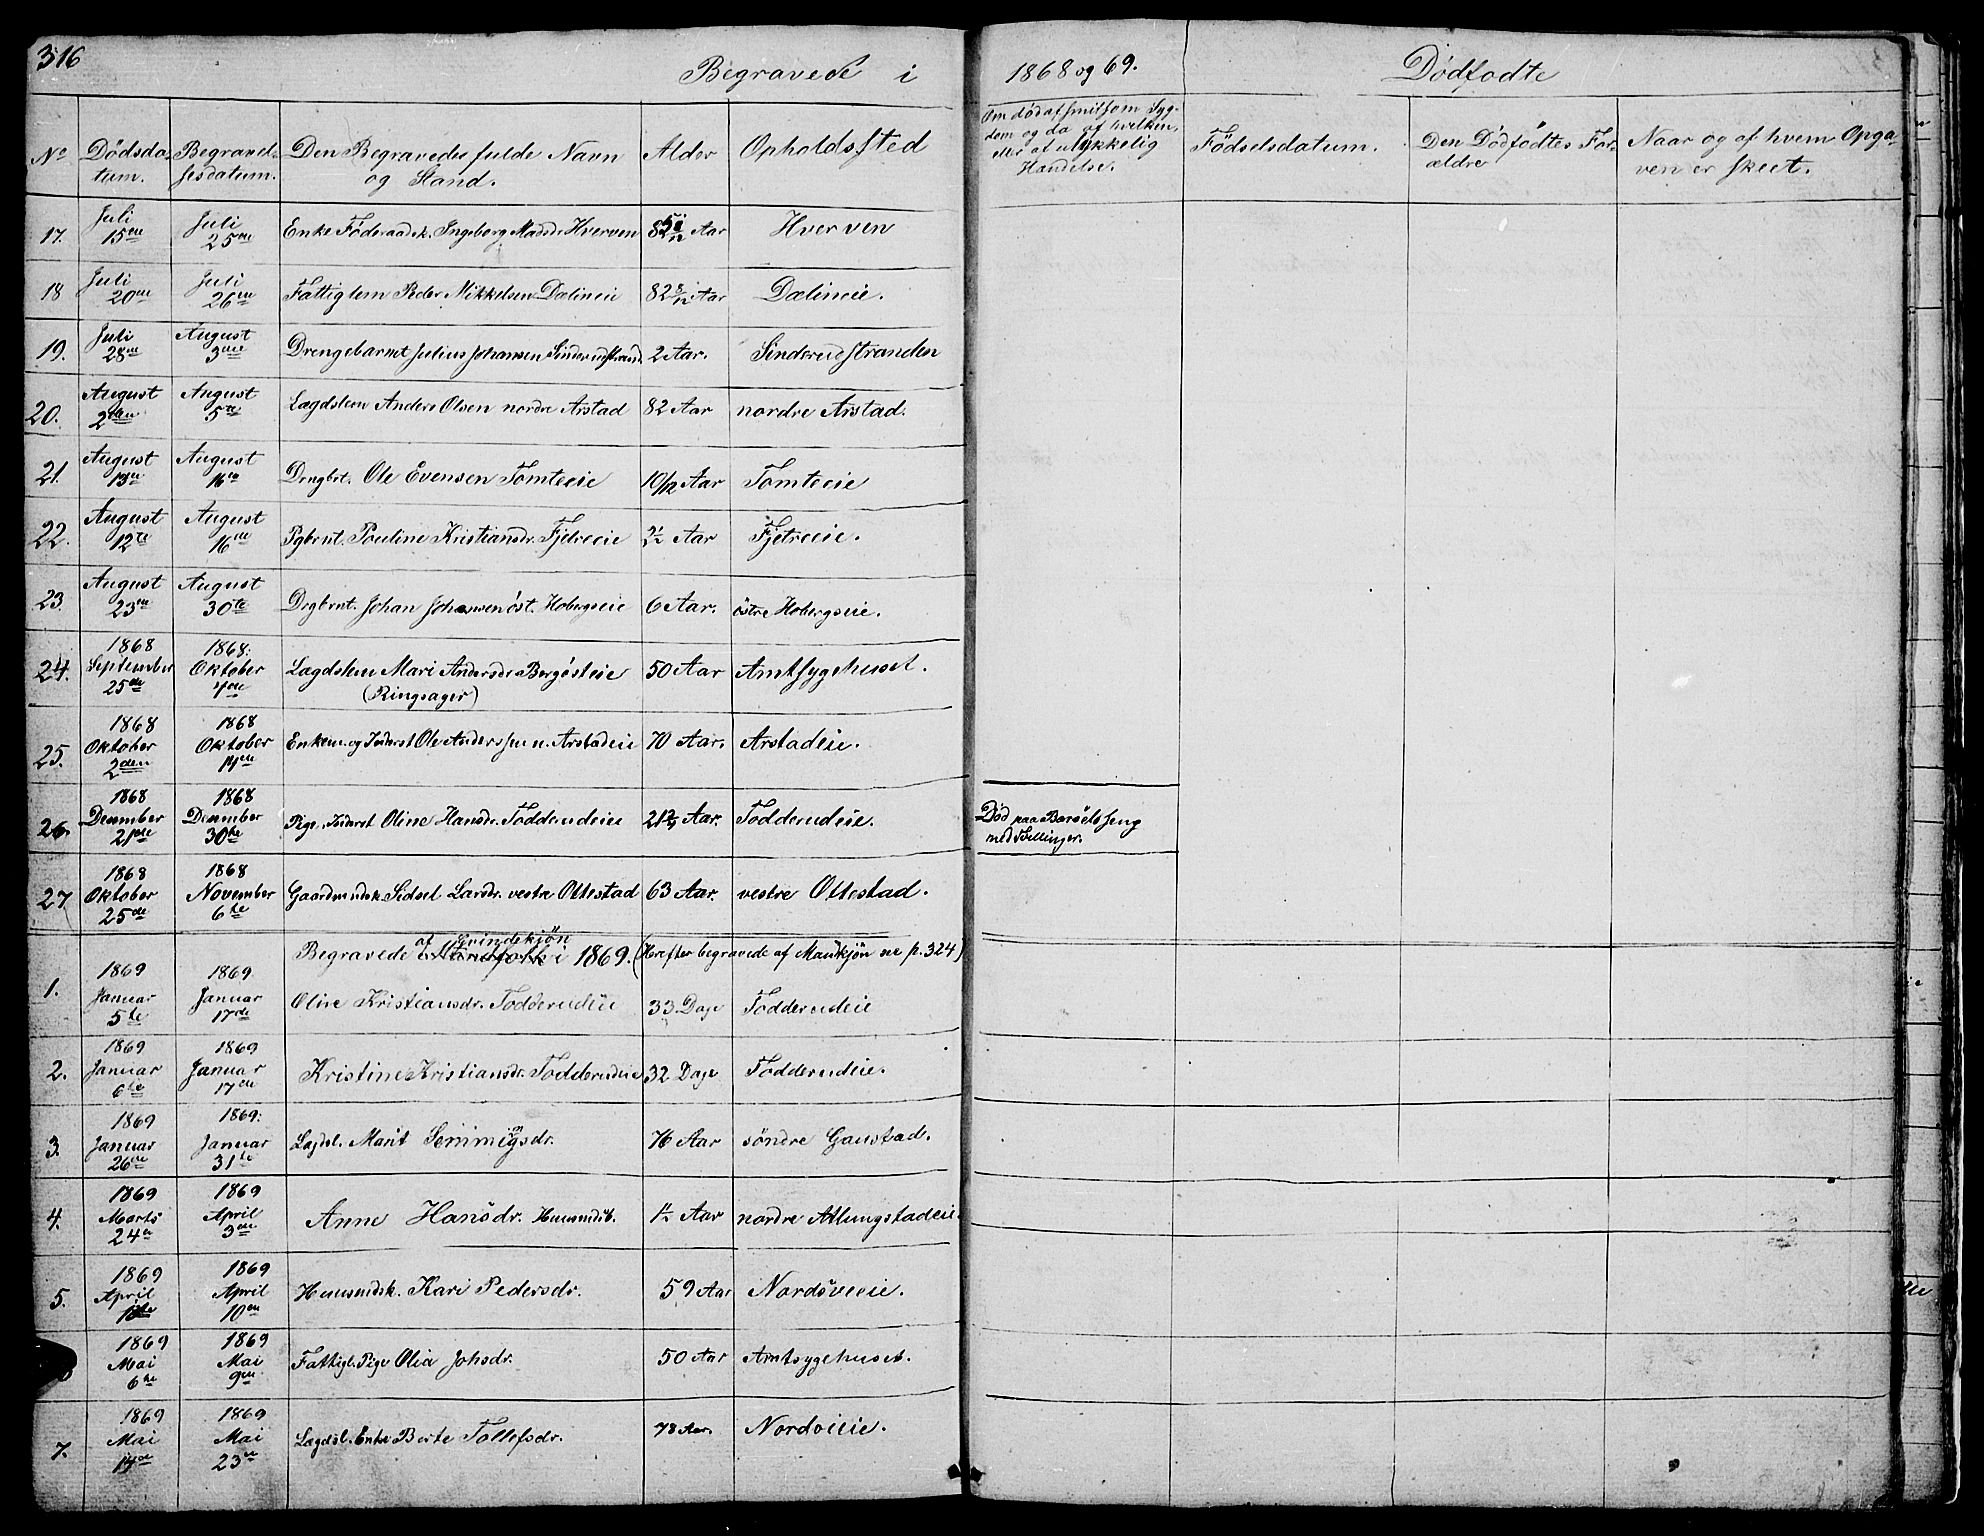 316
Begravede i 1868 og 69.
Dødfødte
No Dødsdatum. Begravelsesdatum. Den Begravedes fulde Navn og Stand. Alder Opholdssted Om død af smitsom Sygdom og da af hvilken, eller et ulykkelig Hændelse. Fødselsdatum. Den Dødfødtes Forældre Naar og af hvem Opgaven er skeet.
17. Juli 15en Juli 25en Enke Föderaadsk. Ingeborg Madsdr Hverven Aar Hverven
18 Juli 20en Juli 26en Fattiglem Peder Mikkelsen Dælineie 82 8/12 Aar Dælineie.
19. Juli 28en August 3die Drengebarnet Julius Johansen Sinderudstrand. 2 Aar. Sinderudstranden
20. August 2den August 5te Lægdslem Anders Olsen nordre Arstad 82 Aar nordre Arstad.
21. August 13en August 16en Drngbrt. Ole Evensen Tomteeie 10/12 Aar Tomteeie
22. August 12te August 16en Pgbrnt. Pauline Kristiansdr. Fjetreeie ½ Aar Fjetreeie.
23. August 23en August 30te Drgbrnt. Johan Johansen öst. Hobergseie 6 Aar. östre Hobergseie.
24. 1868 September 25de 1868. Oktober 4de Lægdslem Mari Andersdr Bergösteie (Ringsager) 50 Aar Amtsygehuset.
25. 1868 Oktober 2den 1868 Oktober 14de Enkem. og Inderst Ole Anderssen n. Arstadeie 70 Aar. Arstadeie.
26. 1868 December 21de 1868 December 30te Pige, Inderst Oline Hansdr. Fodderudeie Aar. Fodderudeie. Död paa Barselsseng med Tvillinger.
27 1868 Oktober 25de 1868 November 6te Gaardmndsk. Sidsel Larsdr. vestre Ottestad 63 Aar. vestre Ottestad.
Begravede af Qvindekjön i 1869. (Herefter begravede af Mankjön se p. 324)
1. 1869 Januar 5te 1869. Januar 17de Oline Kristiansdr. Fodderudeie 33 Dage Fodderudeie
2. 1869 Januar 6te 1869 Januar 17en Kristine Kristiansdr. Fodderudeie 32 Dage Fodderudeie.
3. 1869 Januar 26de 1869. Januar 31te Lægdsl. Marit Semmigsdr. 76 Aar söndre Gaustad.
4. 1869 Marts 24de 1869 April 3die Anne Hansdr. Huusmdsb. ½ Aar nordre Atlungstadeie.
5. 1869 April 1869 April 10en Huusmdsk. Kari Pedersdr. 59 Aar Nordsveeie.
1869 Mai 6te 1869 Mai 9en Fattigl. Pige Olia Johsdr. 50 Aar Amtsygehuset.
7. 1869 Mai 14de 1869 Mai 23de Lægdsl. Enke Berte Tollefsdr. 78 Aar. Nordvieie.